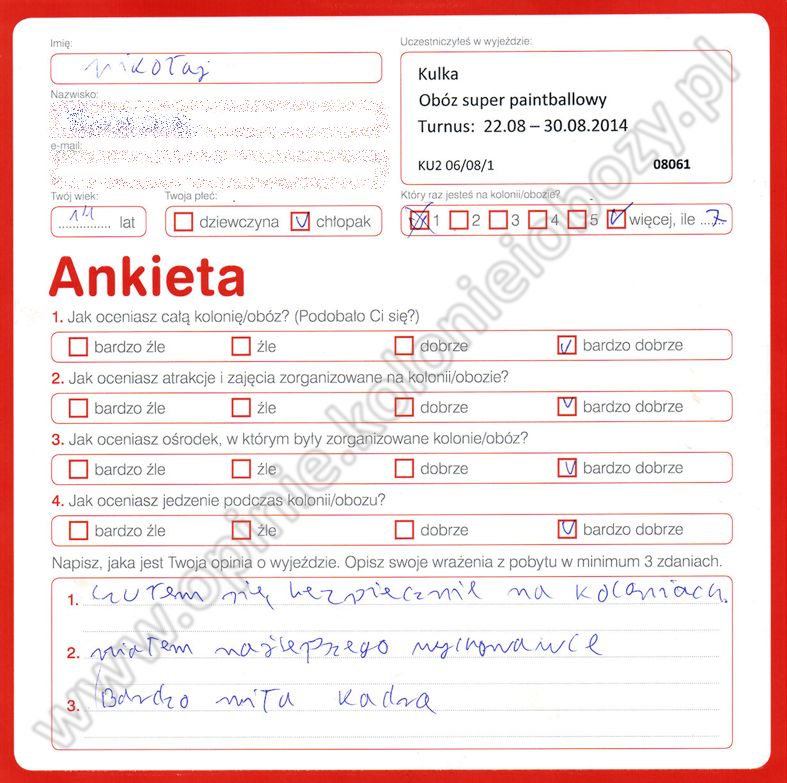 Imię:
Nikołaj
Uczestniczyłeś w wyjeździe:
Kulka
Obóz super paintballowy
Turnus: 22.08 – 30.08.2014
KU2 06/08/1 08061
Nazwisko:
e-mail:
Twój wiek:
14 lat
Twoja płeć:
dziewczyna chłopak
Który raz jesteś na kolonii/obozie?
1 2 3 4 5 więcej, ile ...7...
Ankieta
1. Jak oceniasz całą kolonię/obóz? (Podobało Ci się?)
bardzo źle źle dobrze bardzo dobrze
2. Jak oceniasz atrakcje i zajęcia zorganizowane na kolonii/obozie?
bardzo źle źle dobrze bardzo dobrze
3. Jak oceniasz ośrodek, w którym były zorganizowane kolonie/obóz?
bardzo źle źle dobrze bardzo dobrze
4. Jak oceniasz jedzenie podczas kolonii/obozu?
bardzo źle źle dobrze bardzo dobrze
Napisz, jaka jest Twoja opinia o wyjeździe. Opisz swoje wrażenia z pobytu w minimum 3 zdaniach.
1. czułem się bezpiecznie na koloniach.
2. miałem najlepszego wychowawce
3. Bardzo miła kadra
www.opinie.kolonieiobozy.pl